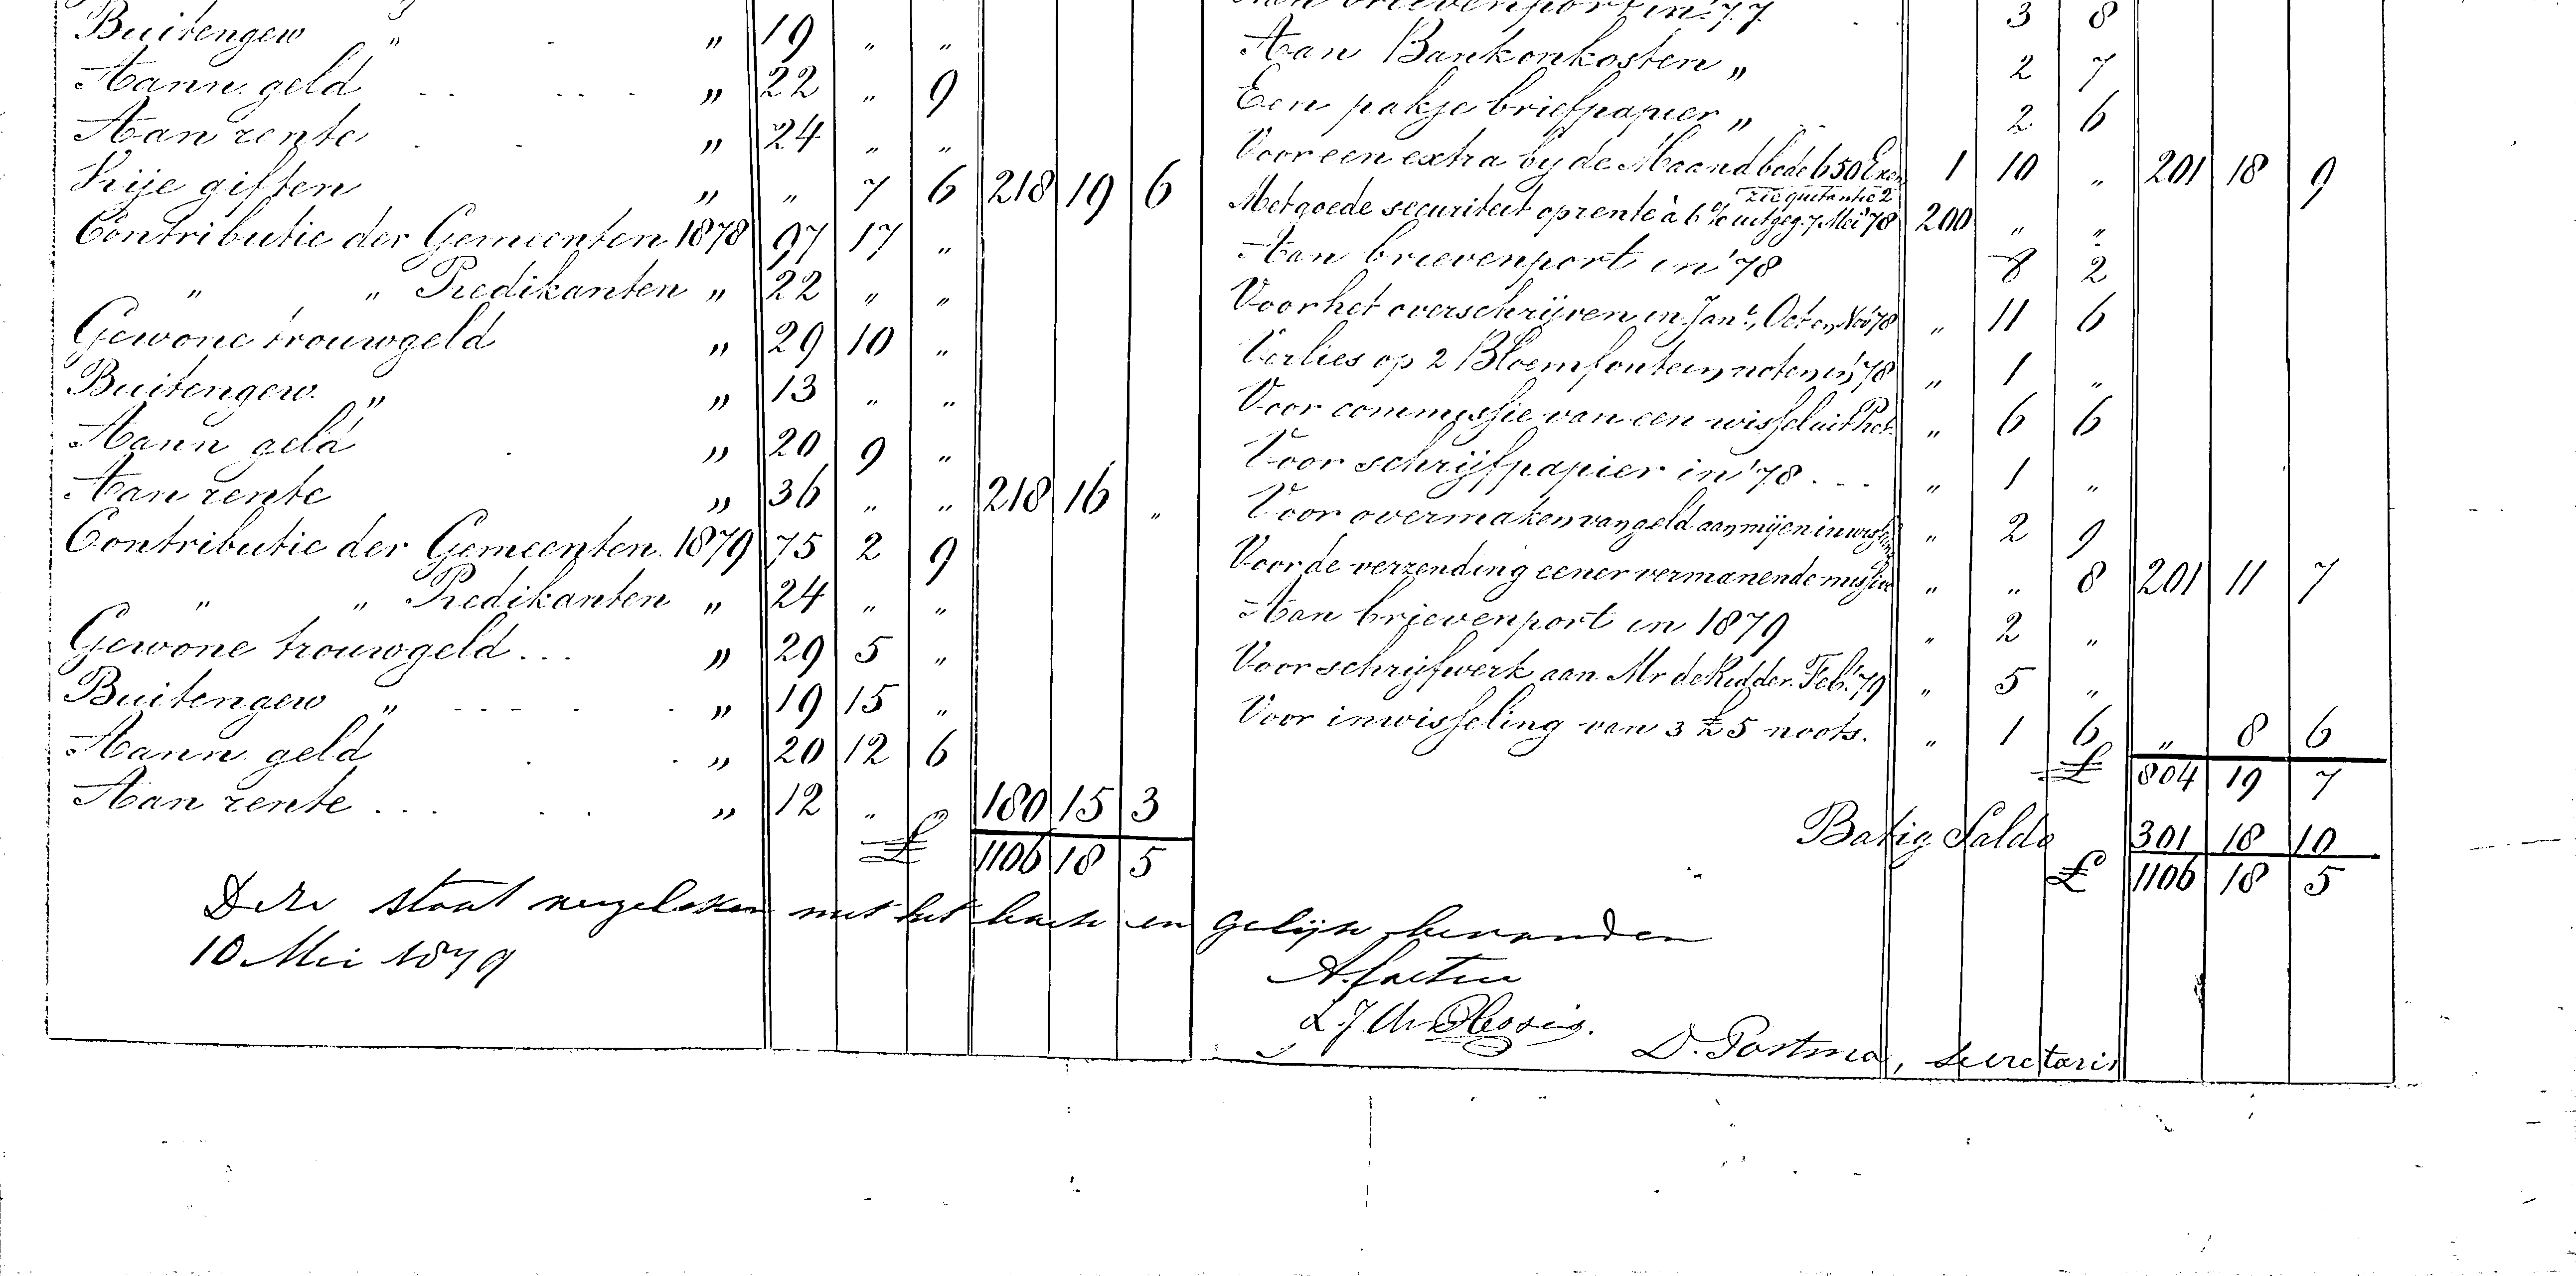 Buitengew " " 19 " "
Aann. geld " 22 " 9
Aan rente " 24 " "
Vrije giften " " 7 6 218 19 6
Contributie der Gemeenten 1878 97 17 "
" " Predikanten " 22 " "
Gewone trouwgeld " 29 10 "
Buitengew. " " 13 " "
Aann geld " 20 9 "
Aan rente " 36 " " 218 16 "
Contributie der Gemeenten. 1879 75 2 9
" " Predikanten " 24 " "
Gewone trouwgeld... " 29 5 "
Buitengew " " 19 15 "
Aann. geld " 20 12 6
Aan rente... " 12 " " 180 15 3
£ 1106 18 5
Aan brievenport in '77 3 8
Aan Bankonkosten " 2 7
Een pakje briefpapier " 2 6
Voor een extra by de Maandbode 650 Exx 1 10 " 201 18 9
zie quitantie 2
Met goede securiteit op rente à 6 % uitgeg. 7 Mei '78 200 " "
Aan brievenport in '78 8 2
Voor het overschrijven in Jan., Oct en Nov '78 " 11 6
Verlies op 2 Bloemfontein noten in '78 " 1 "
Voor commissie van een wissel uit Pot. " 6 6
Voor schrijfpapier in '78... " 1 "
Voor overmaken van geld aan mij en inwissel " 2 9
Voor de verzending eener vermanende missive " " 8 201 11 7
Aan brievenport in 1879 " 2 "
Voor schrijfwerk aan Mr de Ridder. Feb. '79 " 5 "
Voor inwisseling van 3 £5 noots. " 1 6 " 8 6
£ 804 19 7
Batig Saldo 301 18 10
£ 1106 18 5
Deze staat nagelezen met het boek en gelijk bevonden
10 Mei 1879
L. J. du Plessis.
D. Postma, Secretaris